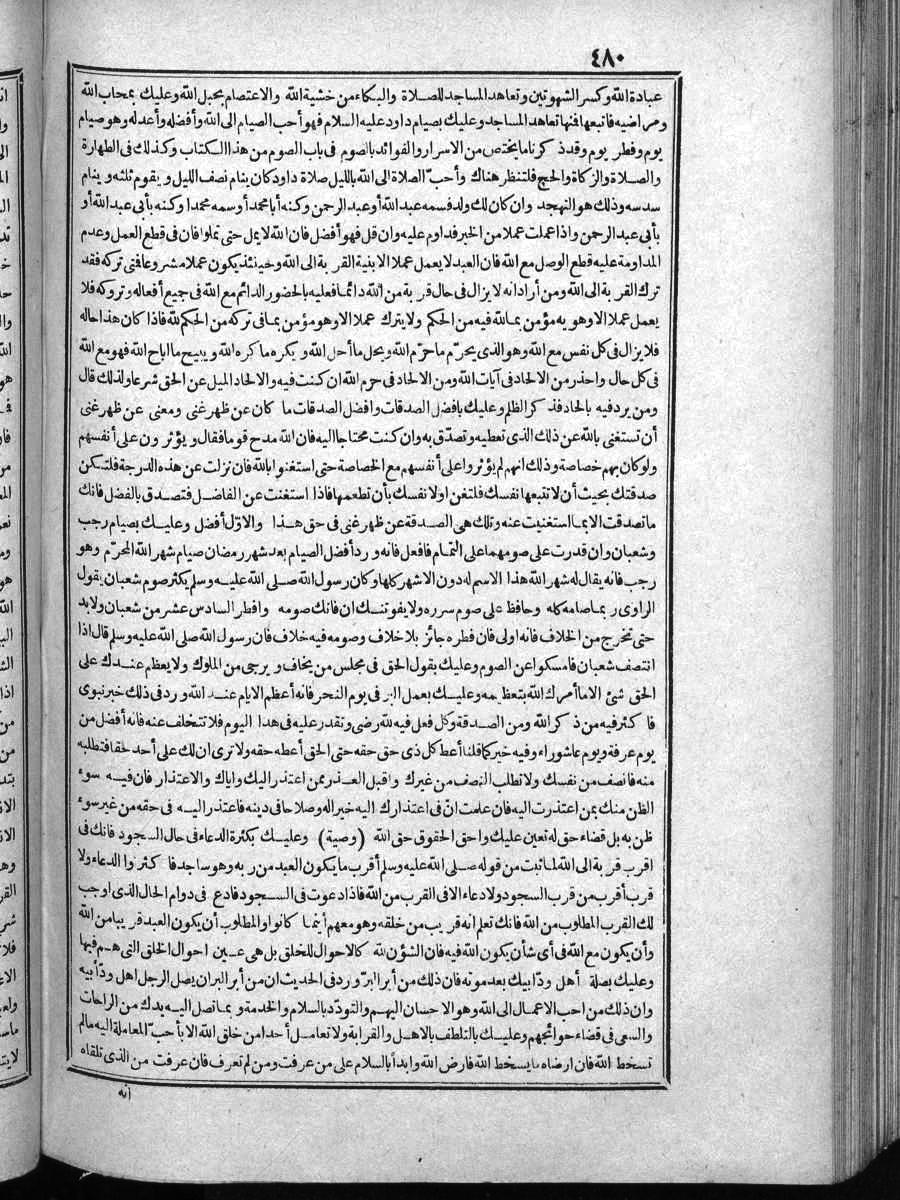 ٤٨٠
عبادة الله وكسر الشهوتين وتعاهد المساجد للصلاة والبكاء من خشية الله والاعتصام بحبل الله وعليك بمحاب الله
ومراضيه فاتبعها فنها تعاهد المساجد وعليك بصيام داود عليه السلام فهو أحب الصيام الى الله وأفضله وأعدله وهو صيام
يوم وفطر يوم وقد ذكرنا ما يختص من الاسرار والفوائد بالصوم فى باب الصوم من هذا الكتاب وكذلك فى الطهارة
والصلاة والزكاة والحج فلتنظر هناك وأحب الصلاة الى الله بالليل صلاة داود كان ينام نصف الليل ويقوم ثلثه وينام
سدسه وذلك هو التهجد وان كان لك ولد فسمه عبد الله أو عبد الرحمن وكنه أبا محمد أو سمه محمدا وكنه بأبى عبد الله أو
بأبى عبد الرحمن واذا عملت عملا من الخير فداوم عليه وان قل فهو أفضل فان الله لا يمل حتى تملوا فان فى قطع العمل وعدم
المداومة عليه قطع الوصل مع الله فان العبد لا يعمل عملا الا بنية القربة الى الله وحينئذ يكون عملا مشروعا فتى تركه فقد
ترك القربة الى الله ومن أراد انه لا يزال فى حال قربة من الله دائما فعليه بالحضور الدائم مع الله فى جميع أفعاله وتروكه فلا
يعمل عملا الا وهو به مؤمن بما لله فيه من الحكم ولا يترك عملا الا وهو مؤمن بما فى تركه من الحكم لله فاذا كان هذا حاله
فلا يزال فى كل نفس مع الله وهو الذى يحرّم ما حرّم الله ويحل ما أحل الله ويكره ما كره الله ويبيح ما اباح الله فهو مع الله
فى كل حال واحذر من الالحاد فى آيات الله ومن الالحاد فى حرم الله ان كنت فيه والالحاد الميل عن الحق شرعا ولذلك قال
ومن يرد فيه بالحاد فذكر الظلم وعليك بافضل الصدقات وافضل الصدقات ما كان عن ظهر غنى ومعنى عن ظهر غنى
أن تستغنى بالله عن ذلك الذى تعطيه وتصدّق به وان كنت محتاجا اليه فان الله مدح قوما فقال ويؤثرون على أنفسهم
ولو كان بهم خصاصة وذلك انهم لم يؤثروا على أنفسهم مع الخصاصة حتى استغنوا بالله فان نزلت عن هذه الدرجة فلتكن
صدقتك بحيث أن لا تتبعها نفسك فلتغن اولا نفسك بأن تطعمها فاذا استغنت عن الفاضل فتصدق بالفضل فانك
ما تصدقت الا بما استغنيت عنه وتلك هى الصدقة عن ظهر غنى فى حق هذا والاوّل أفضل وعليك بصيام رجب
وشعبان وان قدرت على صومهما على التمام فافعل فانه ورد أفضل الصيام بعد شهر رمضان صيام شهر الله المحرّم وهو
رجب فانه يقال له شهر الله هذا الاسم له دون الاشهر كلها وكان رسول الله صلى الله عليه وسلم يكثر صوم شعبان يقول
الراوى ربما صامه كله وحافظ على صوم سرره ولا يفوتنك ان فانك صومه وافطر السادس عشر من شعبان ولا بد
حتى تخرج من الخلاف فانه اولى فان فطره جائز بلا خلاف وصومه فيه خلاف فان رسول الله صلى الله عليه وسلم قال اذا
انتصف شعبان فامسكوا عن الصوم وعليك بقول الحق فى مجلس من يخاف ويرجى من الملوك ولا يعظم عندك على
الحق شئ الا ما أمرك الله بتعظيمه وعليك بعمل البر فى يوم النحر فانه أعظم الايام عند الله ورد فى ذلك خبر نبوى
فاكثر فيه من ذكر الله ومن الصدقة وكل فعل فيه لله رضى وتقدر عليه فى هذا اليوم فلا تتخلف عنه فانه أفضل من
يوم عرفة ويوم عاشوراء وفيه خير كما قلنا أعط كل ذى حق حقه حتى الحق أعطه حقه ولا ترى ان لك على أحد حقا فتطلبه
منه فانصف من نفسك ولا تطلب النصف من غيرك واقبل العذر ممن اعتذر اليك واياك والاعتذار فان فيه سوء
الظن منك بمن اعتذرت اليه فان علمت انّ فى اعتذارك اليه خيرا له وصلاحا فى دينه فاعتذر اليه فى حقه من غير سوء
ظن به بل قضاء حق له تعين عليك واحق الحقوق حق الله (وصية) وعليك بكثرة الدعاء فى حال السجود فانك فى
اقرب قربة الى الله لما ثبت من قوله صلى الله عليه وسلم أقرب ما يكون العبد من ربه وهو ساجد فاكثروا الدعاء ولا
قرب أقرب من قرب السجود ولا دعاء الا فى القرب من الله فاذا دعوت فى السجود فادع فى دوام الحال الذى اوجب
لك القرب المطلوب من الله فانك تعلم انه قريب من خلقه وهو معهم أينما كانوا والمطلوب أن يكون العبد قريبا من الله
وأن يكون مع الله فى أى شأن يكون الله فيه فان الشؤن لله كالاحوال للخلق بل هى عين احوال الخلق التى هم فيها
وعليك بصلة أهل ودّ أبيك بعد موته فان ذلك من أبر البرّ ورد فى الحديث ان من أبر البر ان يصل الرجل اهل ودّ أبيه
وان ذلك من احب الاعمال الى الله وهو الاحسان اليهم والتودّد بالسلام والخدمة وبما تصل اليه يدك من الراحات
والسعى فى قضاء حوائجهم وعليك بالتلطف بالاهل والقرابة ولا تعامل أحدا من خلق الله الا بأحبّ المعاملة اليه مالم
تسخط الله فان ارضاه ما يسخط الله فارض الله وابدأ بالسلام على من عرفت ومن لم تعرف فان عرفت من الذى تلقاه
انه